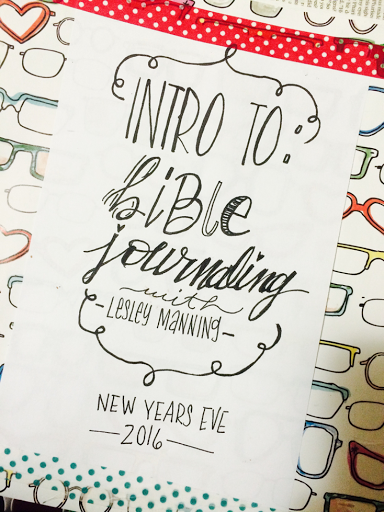 INTRO TO:
BiBle
journaling
with
-LESLEY MANNING-
NEW YEARS EVE
—2016—